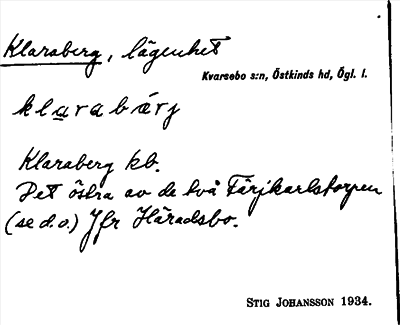 Klaraberg, lägenhet
Kvarsebo s:n, Östkinds hd, Ögl. l.
klarabärj
Klaraberg kb.
Det östra av de två Färjkarlstorpen
(se d.o.) Jfr Häradsbo.
STIG JOHANSSON 1934.